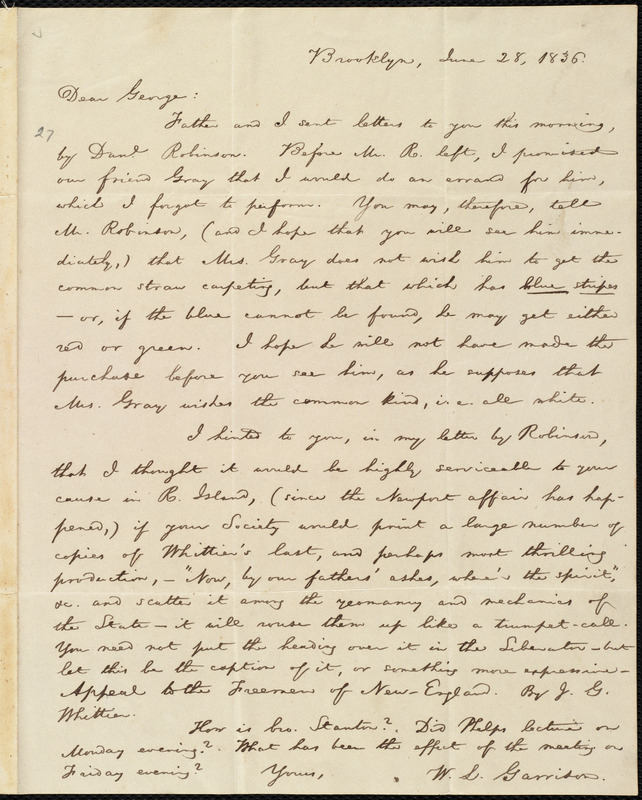 Brooklyn, June 28, 1836.
Dear George:
Father and I sent letters to you this morning,
27
by Danl. Robinson. Before Mr. R. left, I promised
our friend Gray that I would do an errand for him,
which I forgot to perform. You may, therefore, tell
Mr. Robinson, (and I hope that you will see him imme-
diately,) that Mrs. Gray does not wish him to get the
common straw carpeting, but that which has blue stripes
— or, if the blue cannot be found, he may get either
red or green. I hope he will not have made the
purchase before you see him, as he supposes that
Mrs. Gray wishes the common kind, i. e. all white.
I hinted to you, in my letter by Robinson,
that I thought it would be highly serviceable to your
cause in R. Island, (since the Newport affair has hap-
pened,) if your Society would print a large number of
copies of Whittier's last, and perhaps most thrilling
production, — "Now, by our fathers' ashes, where's the spirit,"
&c. and scatter it among the yeomanry and mechanics of
the State — it will rouse them up like a trumpet-call.
You need not put the heading over it in the Liberator — but
let this be the caption of it, or something more expressive —
Appeal to the Freemen of New-England. By J. G.
Whittier.
How is bro. Stanton? Did Phelps lecture on
Monday evening? What has been the effect of the meeting on
Friday evening? Yours, W. L. Garrison.